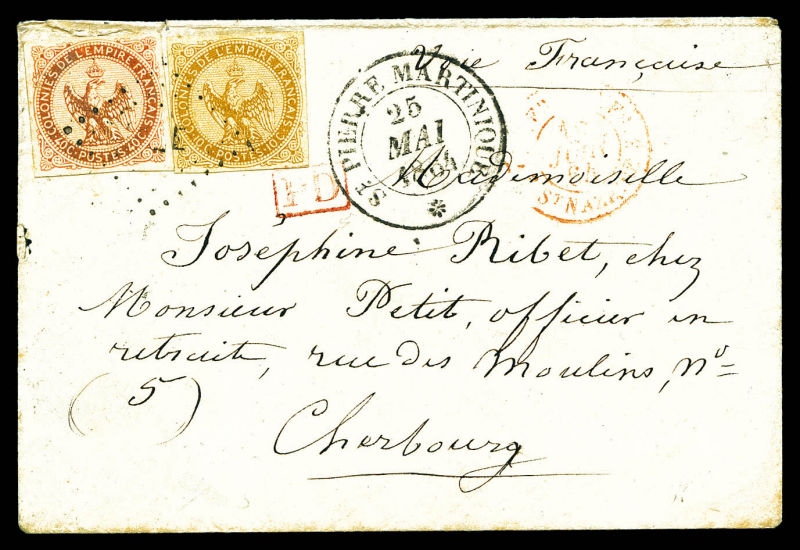 Voie Française
COLONIES DE L'EMPIRE FRANÇAIS
40c. POSTES 40c.
COLONIES DE L'EMPIRE FRANÇAIS
10c. POSTES 10c.
ST PIERRE MARTINIQUE
25
MAI
PD
ST NAZ
Mademoiselle
Joséphine Ribet, chez
Monsieur Petit, officier en
retraite, rue des Moulins, No
(5)
Cherbourg